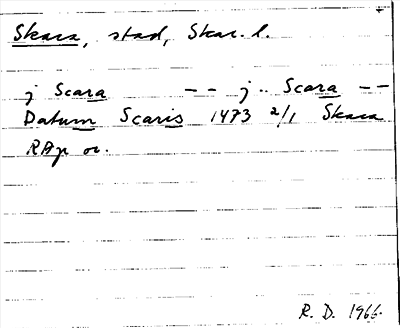 Skara, stad, Skar. l.
j Scara -- j Scara --
Datum Scaris 1473 2/1 Skara
RAp or.
R. D. 1966.